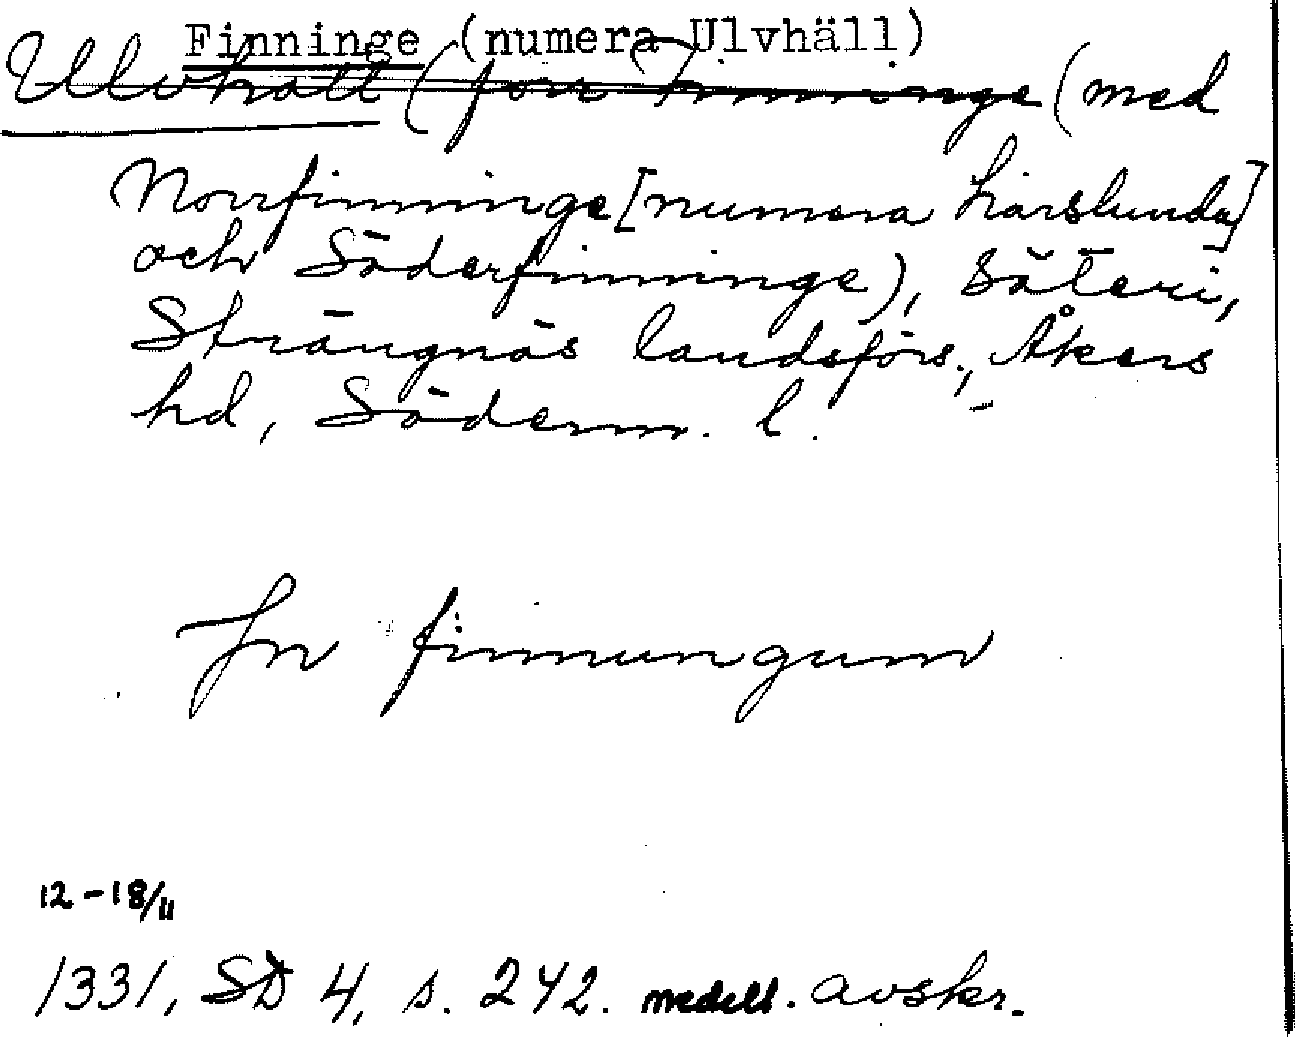 Finninge (numera Ulvhäll)
Ulvhäll (förr Finninge (med
Norrfinninge [numera Härslunda]
och Söderfinninge), säteri,
Strängnäs landsförs., Åkers
hd, Söderm. l.
Jn finnungum
12-18/11
1331, SD 4, s. 242. medelt. avskr.